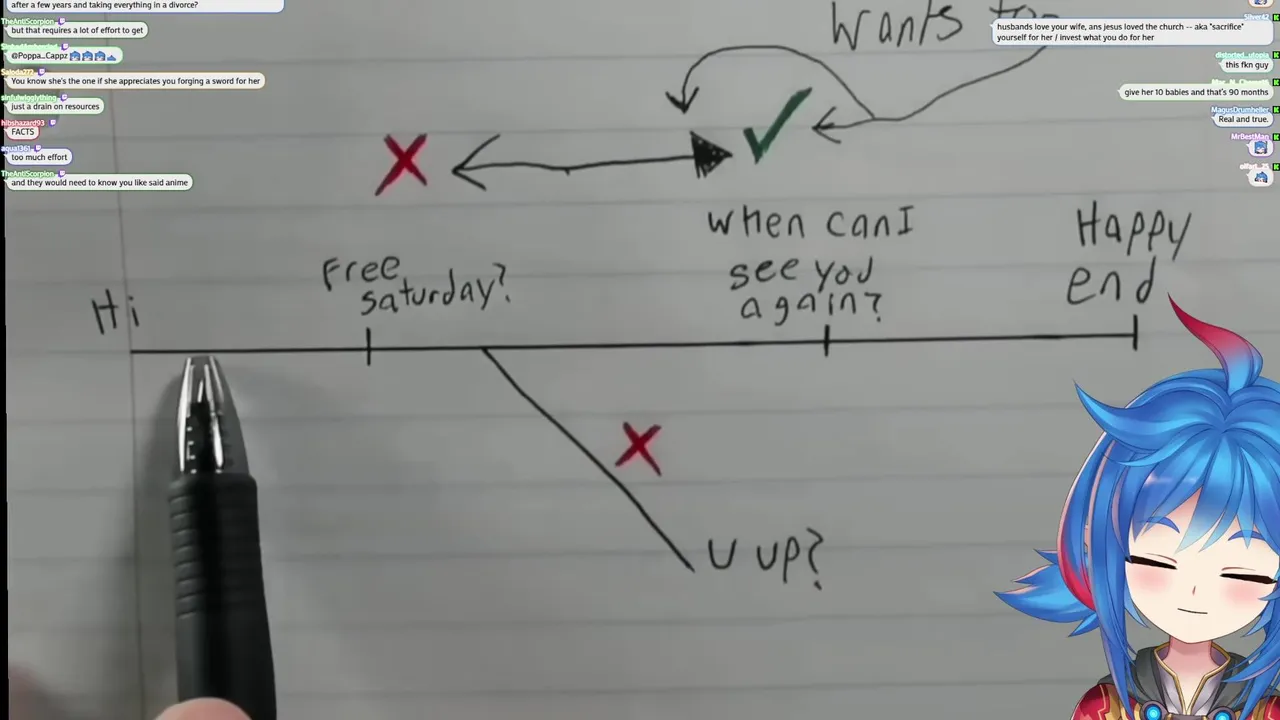 after a few years and taking everything in a divorce?
TheAntiScorpion
but that requires a lot of effort to get
@Poppa_Cappz
Saioda222
You know she's the one if she appreciates you forging a sword for her
sinfulwigglything
just a drain on resources
hibshazard93
FACTS
aqua1361
too much effort
TheAntiScorpion
and they would need to know you like said anime
husbands love your wife, ans jesus loved the church -- aka "sacrifice"
yourself for her / invest what you do for her
distorted_utopia
this fkn guy
give her 10 babies and that's 90 months
MagusDrumheller
Real and true.
MrBestMan
Wants to
Hi
Free
saturday?
when can I
see you
again?
Happy
end
U up?